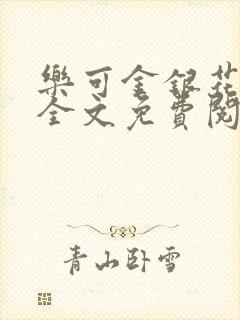 樂可金銀花
全文免費閱
青山卧雪